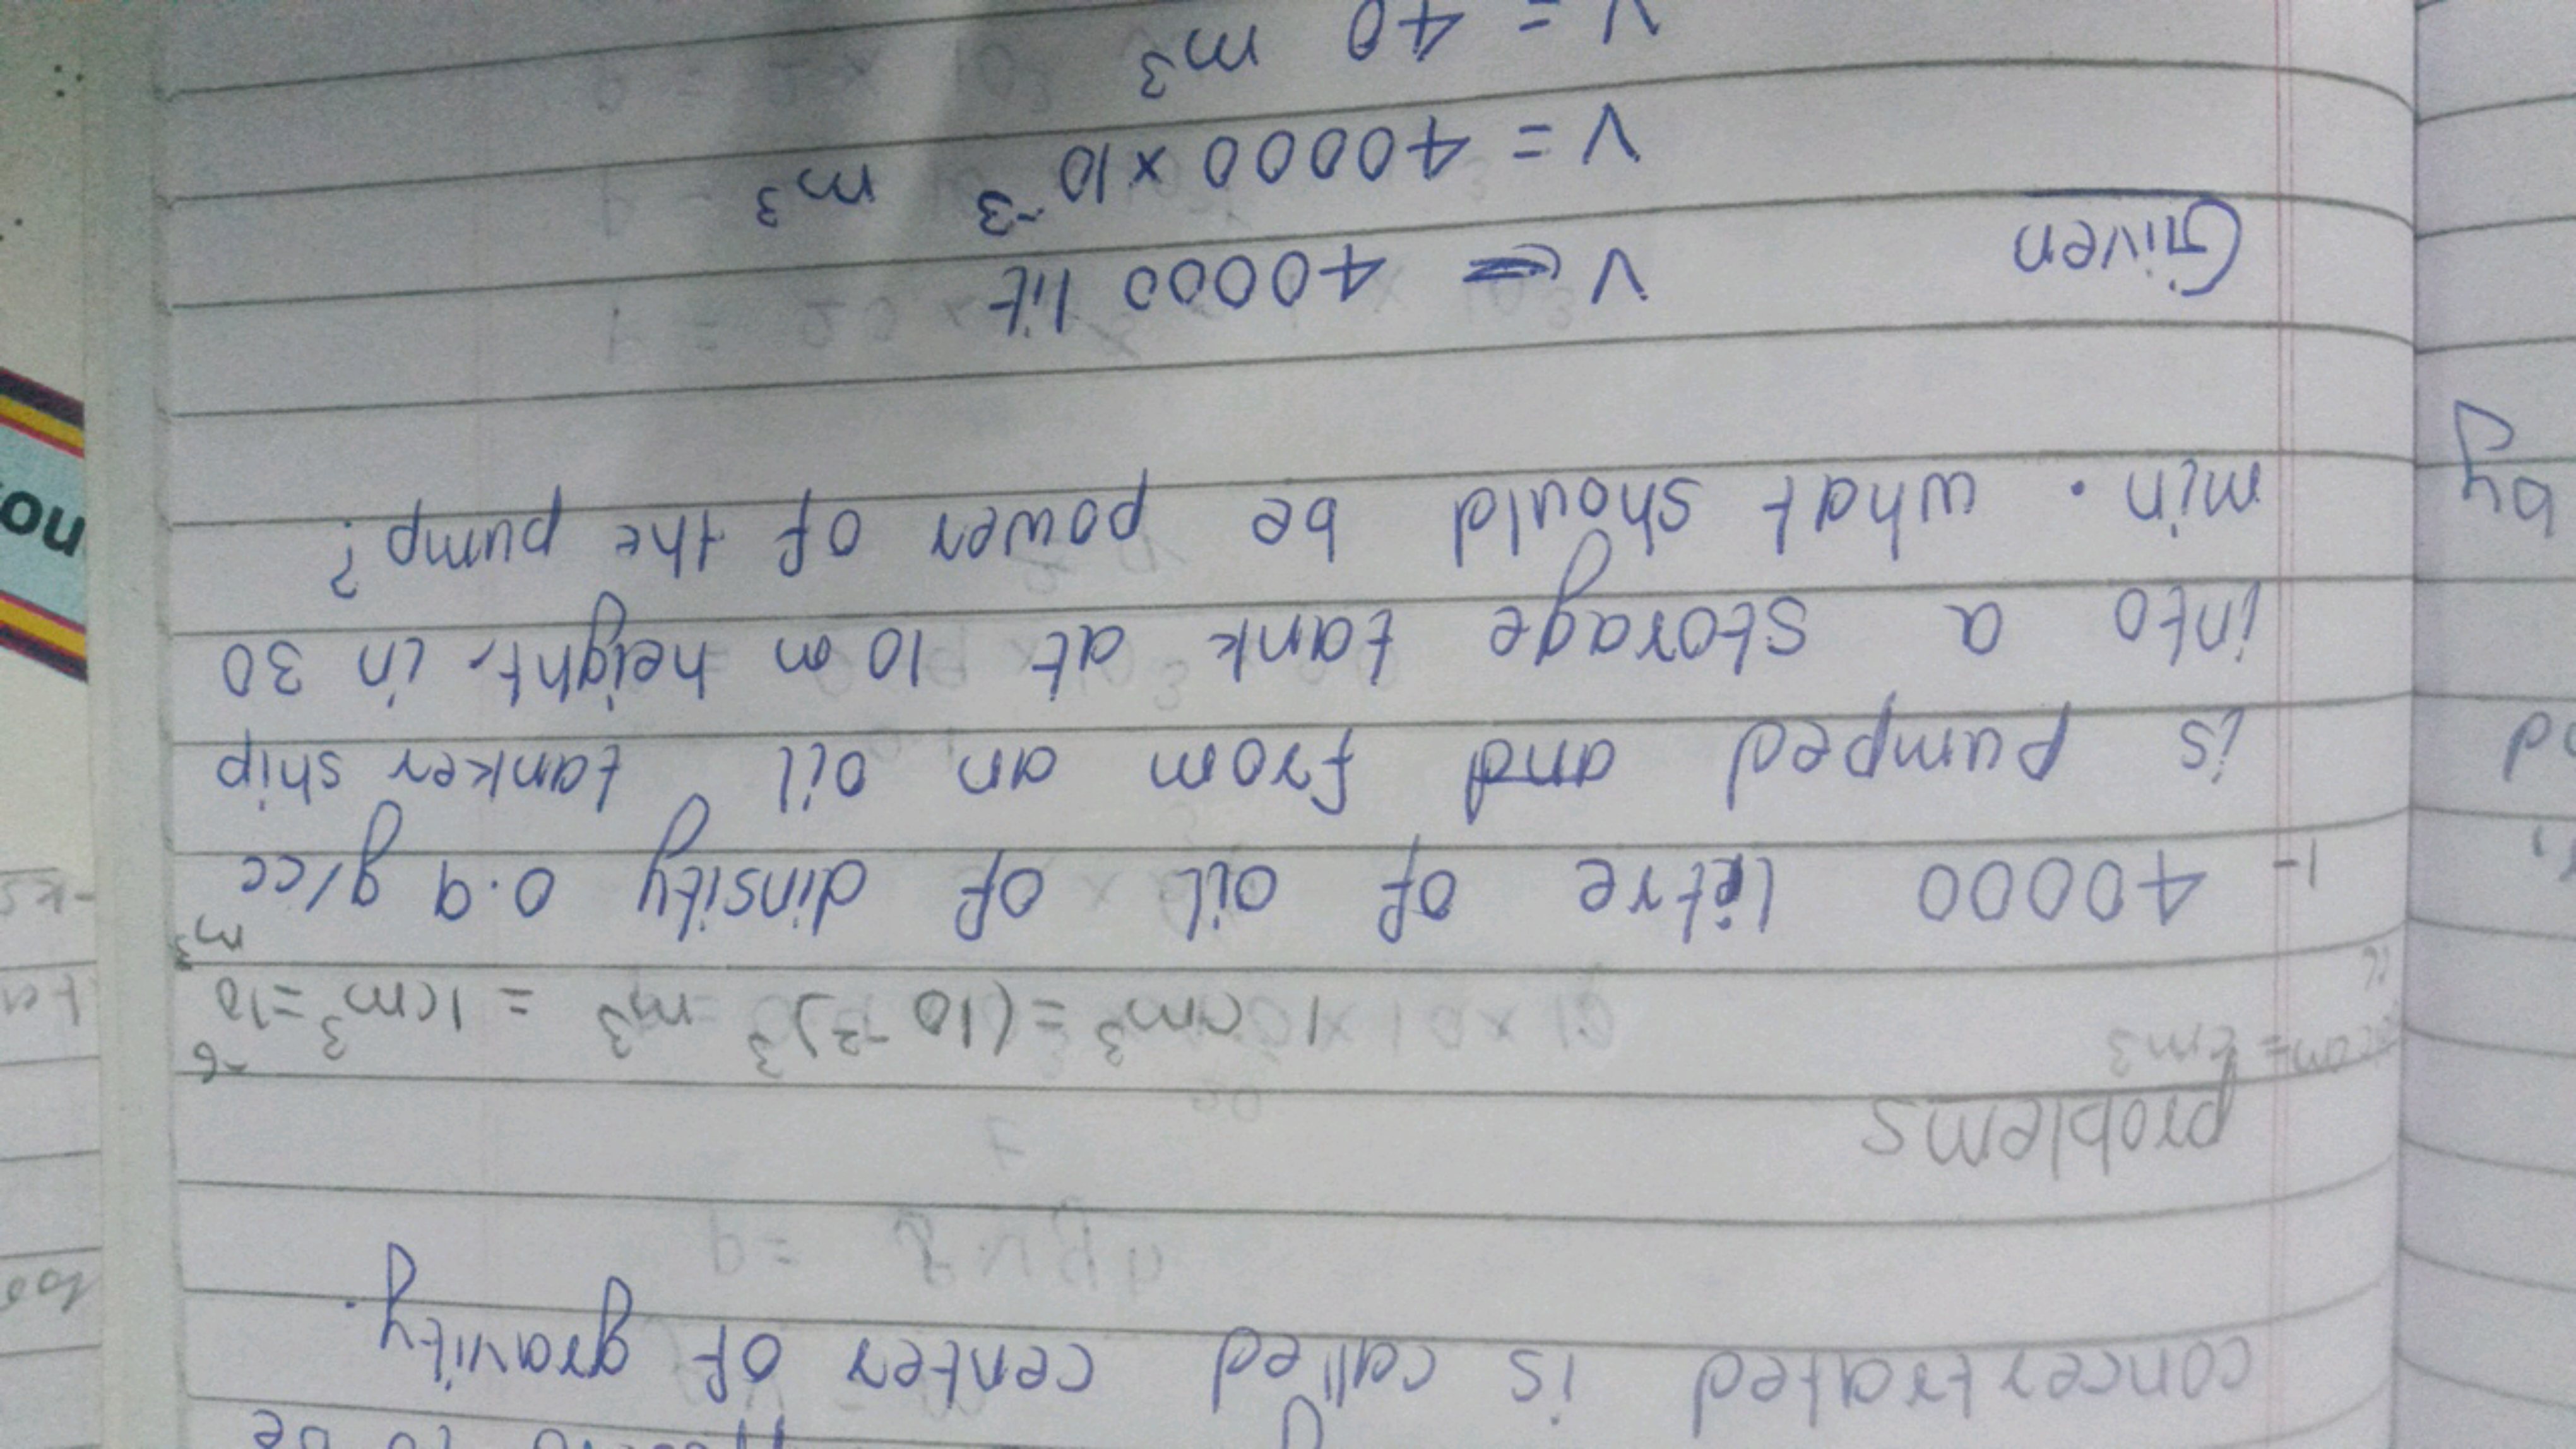 concentrated is called center of gravity.
problems
1cm³ = (10⁻²)³ m³ = 1cm³ = 10⁻⁶ m³
1- 40000 litre of oil of dinsity 0.9 g/cc
is pumped and from an oil tanker ship
into a storage tank at 10 m height. in 30
min. what should be power of the pump?
Given V = 40000 lit
V = 40000 × 10⁻³ m³
V = 40 m³
by